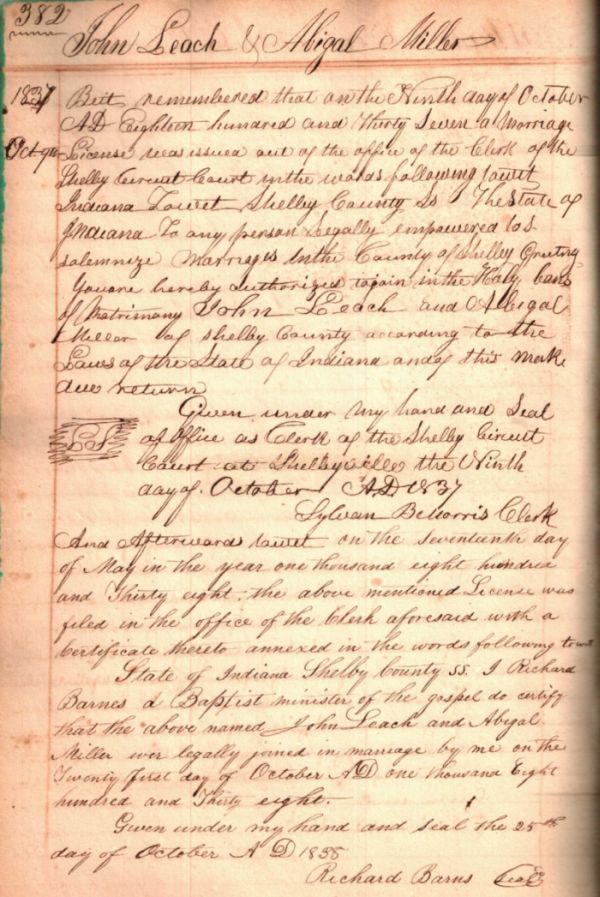 382
John Leach & Abigal Miller
1837 Beit remembered that on the Ninth day of October
AD Eighteen hundred and thirty Seven a Marriage
Oct 9th License was issued out of the office of the Clerk of the
Shelby Circuit Court in the words following towit
Indiana Towit Shelby County Ss The State of
Indiana To any person Legally empowered to
solemneze Marriages in the County of Shelby Greeting
You are hereby authorized to join in the Holy
of Matrimony John Leach and Abigal
Miller of Shelby County according to the
Laws of the State of Indiana and of this make
due return
Given under my hand and Seal
of Office as Clerk of the Shelby Circuit
LS
Court at Shelbyville the Ninth
day of October AD 1837
Sylvan B Morris Clerk
And Afterwards towit on the seventeenth day
of May in the year one thousand eight hundred
and Thirty eight the above mentioned License was
filed in the office of the Clerk aforesaid with a
Certificate thereto annexed in the words following to wit
State of Indiana Shelby County SS. I Richard
Barnes a Baptist minister of the gospel do certify
that the above named John Leach and Abigal
Miller wer legally joined in marriage by me on the
Twenty first day of October AD one thousand Eight
hundred and Thirty eight.
Given under my hand and seal the 25th
day of October A D 1838
Richard Barns Seal